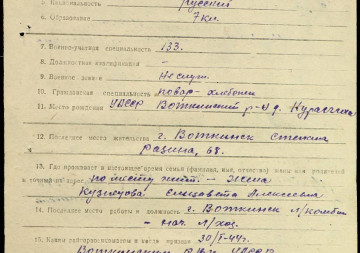 5. Национальность русский
6. Образование 7 кл.
7. Военно-учетная специальность 133.
8. Должностная квалификация –
9. Воинское звание Не служ.
10. Гражданская специальность повар-хлебопек
11. Место рождения УАССР Воткинский р-н д.
12. Последнее место жительства г. Воткинск Степана
Разина, 68.
13. Где проживает в настоящее время семья (фамилия, имя, отчество) жены или родителей
и точный их адрес по месту жит. – жена
Кузнецова Елизавета Алексеевна
14. Последнее место работы и должность г. Воткинск
– нач. л/хоз.
15. Каким райгорвоенкоматом и когда призван 30/I-44 г.